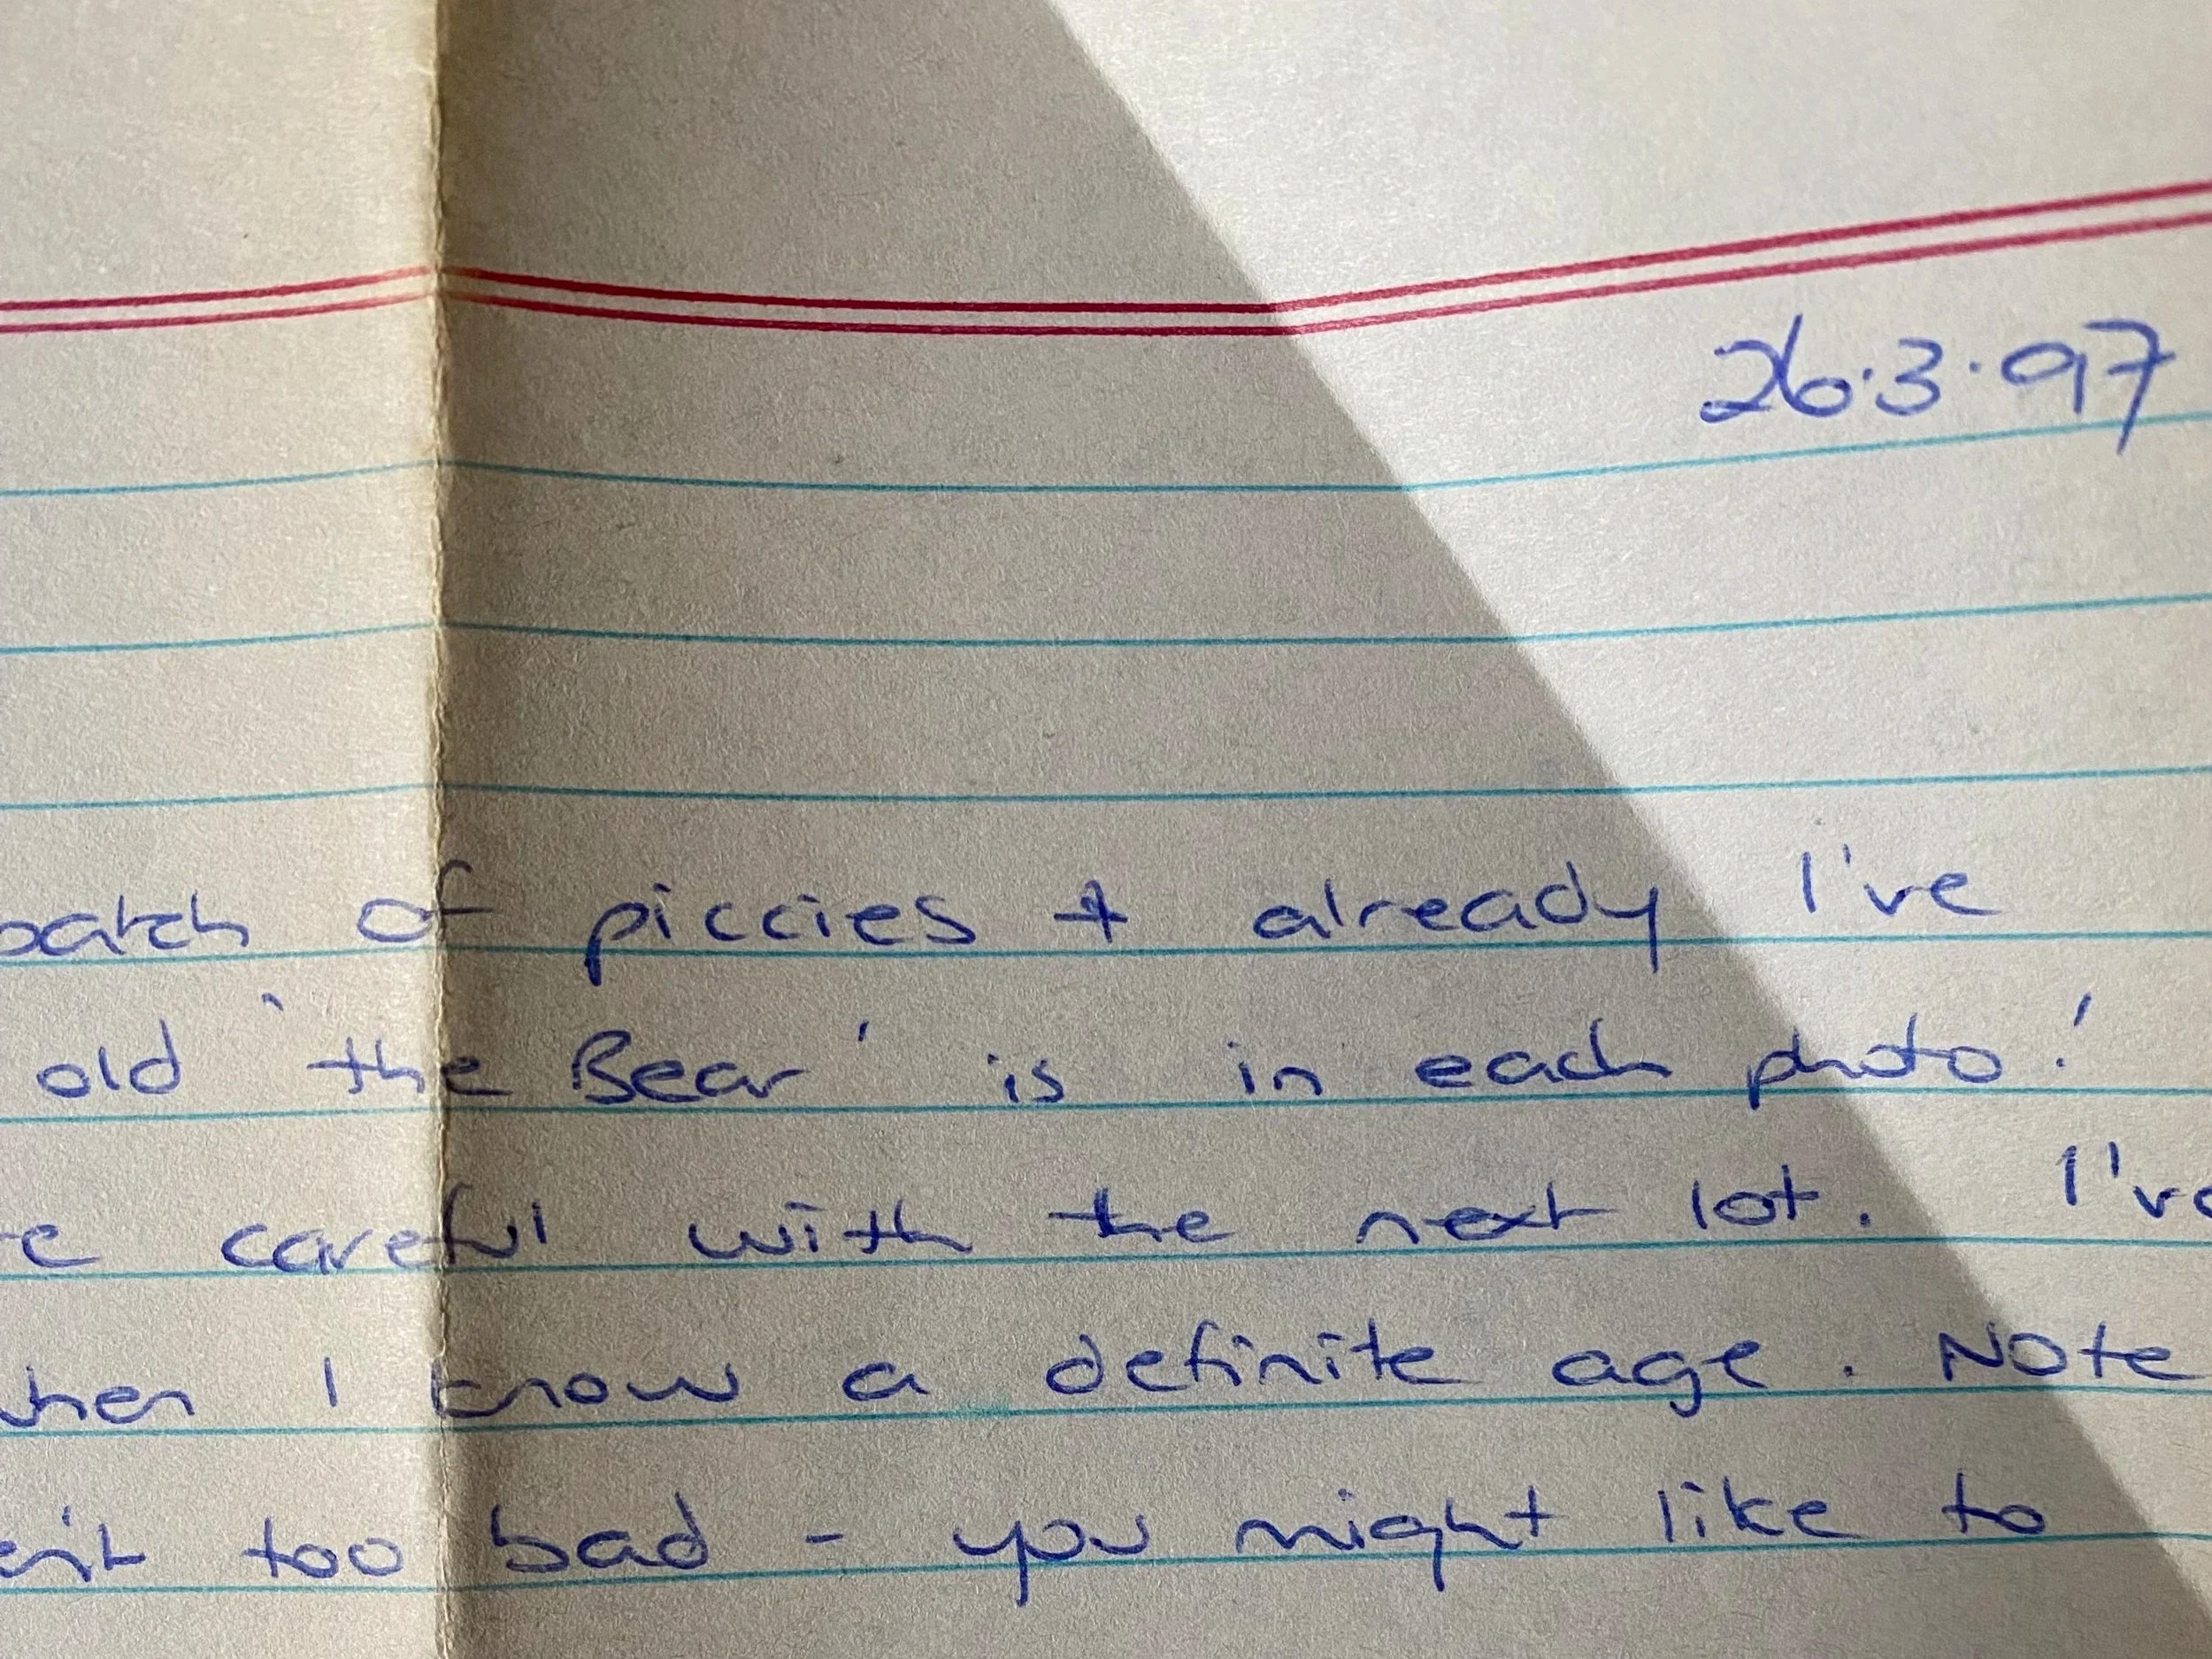 26.3.97
batch of piccies + already I've
old 'the Bear' is in each photo!
careful with the next lot. I've
when I know a definite age. Note
too bad - you might like to